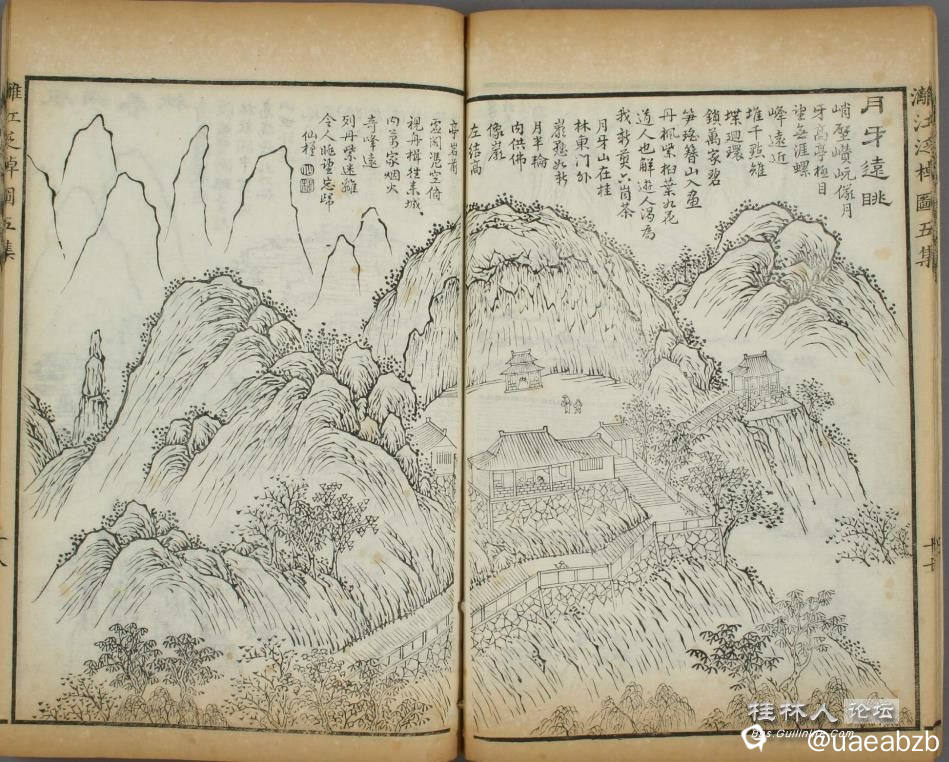 灕江泛棹圖五集
月牙遠眺
峭壁巑岏像月
牙高亭極目
望無涯螺
峰遠近
堆千點雉
堞環
鎖萬家碧
筍瑤簪山入畫
丹楓紫桕葉如花
道人也解遊人渴為
我新煎崗茶
月牙山在桂
林東門外
巖懸如新
月半輪
內供佛
像巖
左結高
亭巖前
虛閣憑空俯
視舟楫往來城
內萬家烟火
奇峰遠
列丹紫迷離
令人眺望忘歸
仙槎
灕江泛棹圖五集
桂林人论坛
bbs.Guilinlife.Com
@uaeabzb